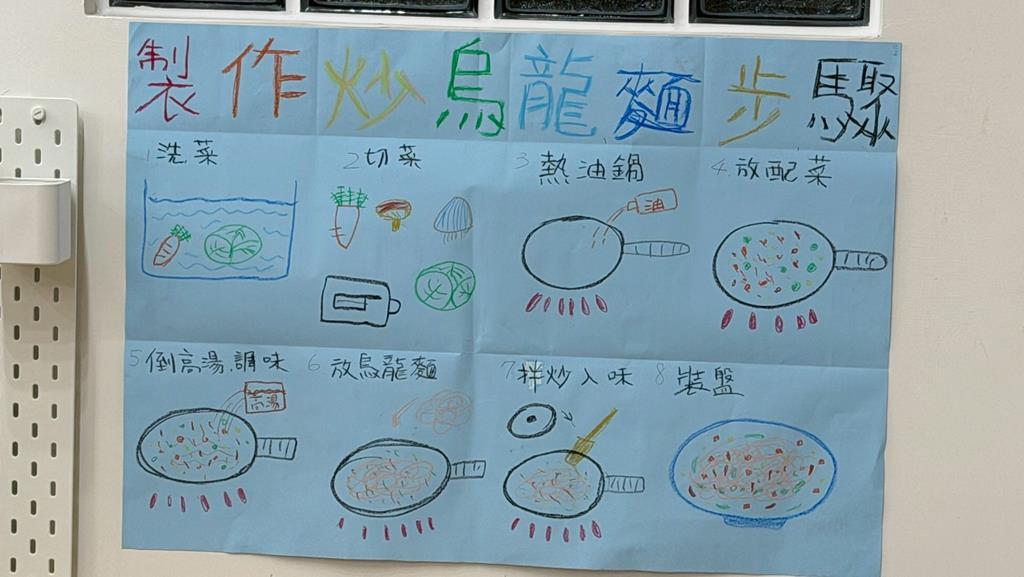 製作炒烏龍麵步驟
1 洗菜
2 切菜
3 熱油鍋
油
4. 放配菜
5 倒高湯.調味
高湯
6 放烏龍麵
7 拌炒入味
8 裝盤